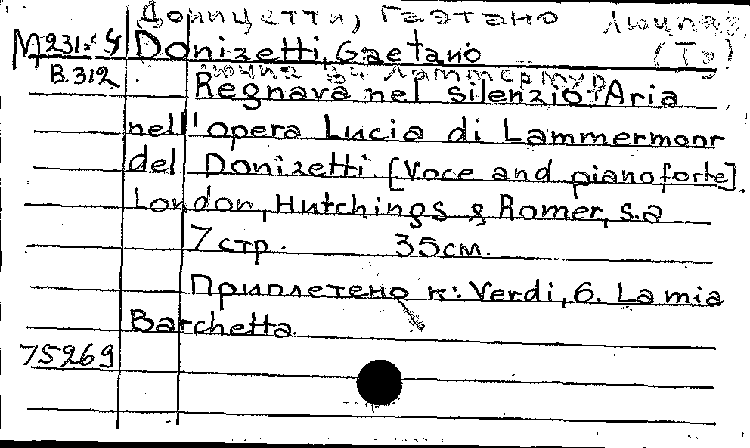 Доницетти, Гаэтано
M231.4 Donizetti, Gaetano
B.312
Regnava nel silenzio: Aria
nell'opera Lucia di Lammermoor
del Donizetti. [Voce and pianoforte].
London, Hutchings & Romer, s.a
7 стр. 35 см.
Приплетено к: Verdi, G. La mia
Barchetta.
75269